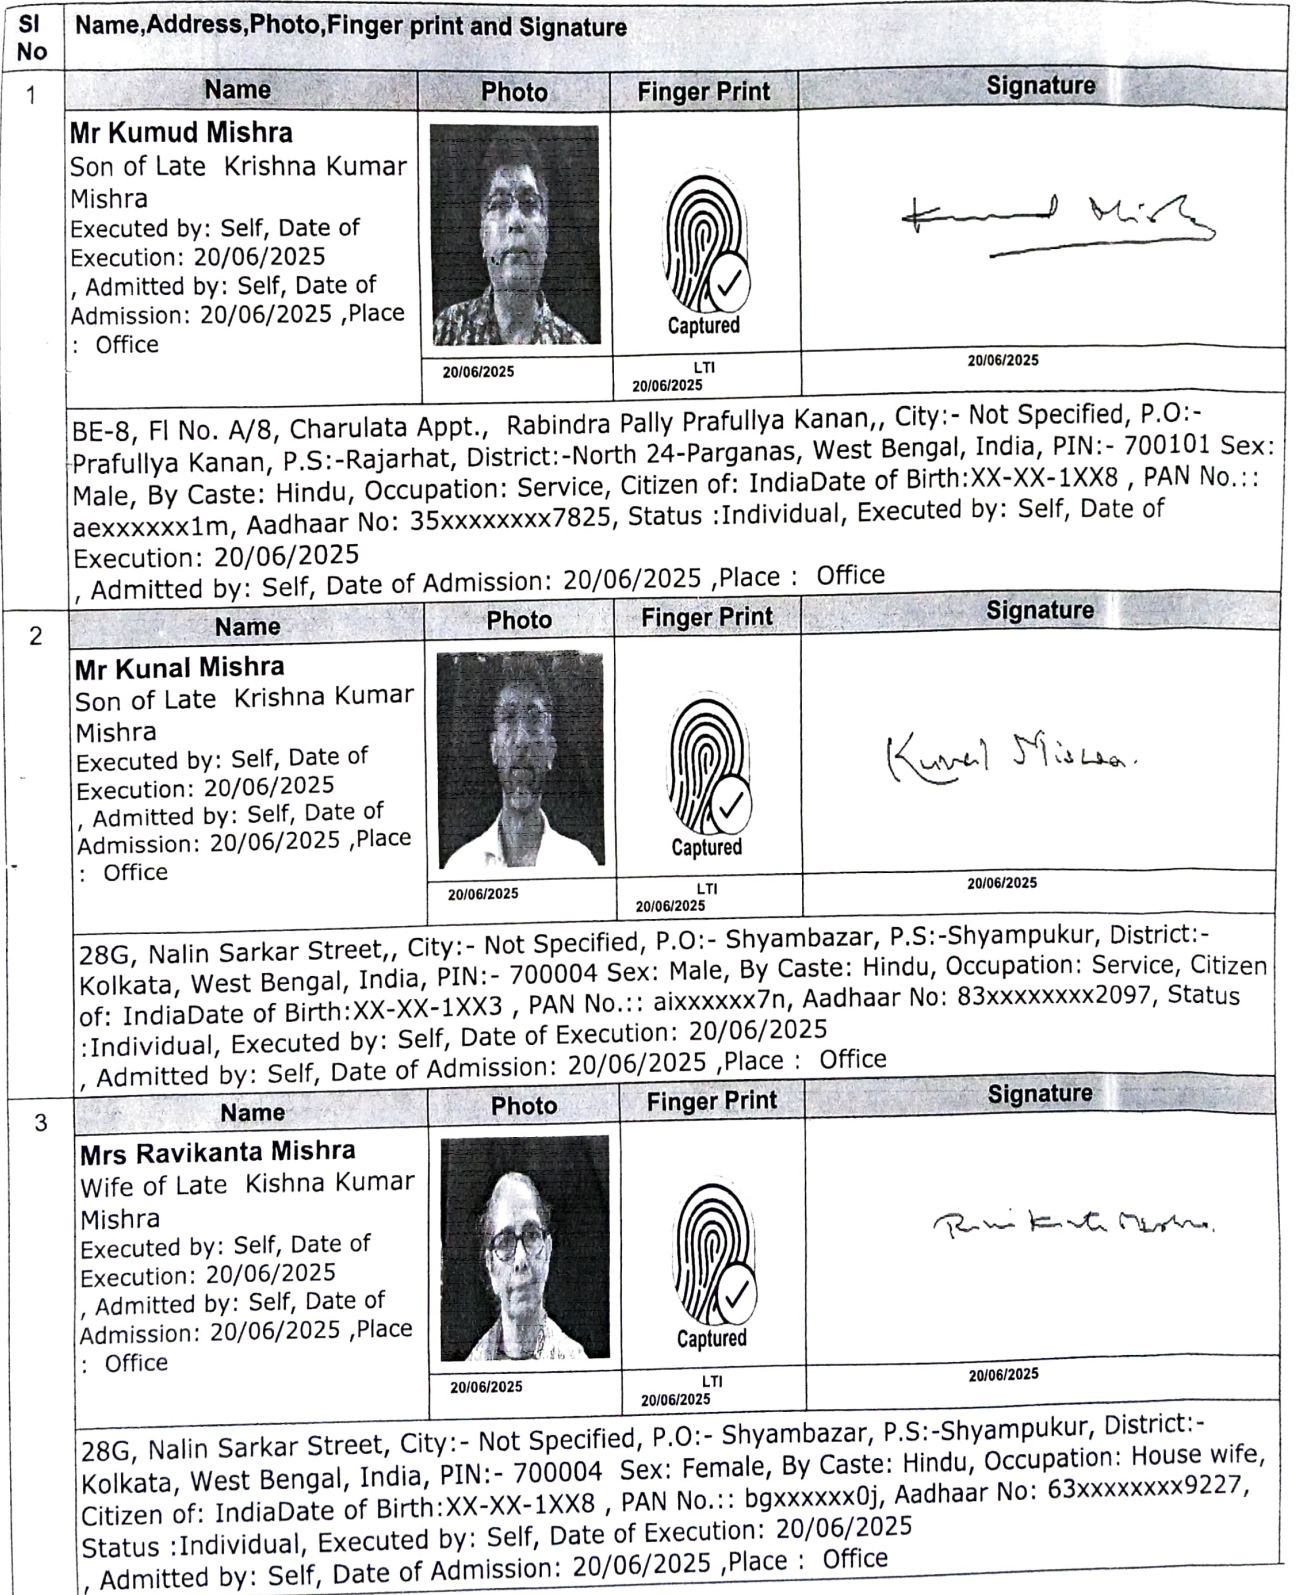 Sl No Name,Address,Photo,Finger print and Signature
1 Name Photo Finger Print Signature
Mr Kumud Mishra
Son of Late Krishna Kumar
Mishra
Executed by: Self, Date of
Execution: 20/06/2025
, Admitted by: Self, Date of
Admission: 20/06/2025 ,Place
: Office
Captured
Kumud Mishra
20/06/2025 LTI 20/06/2025
20/06/2025
BE-8, Fl No. A/8, Charulata Appt., Rabindra Pally Prafullya Kanan,, City:- Not Specified, P.O:-
Prafullya Kanan, P.S:-Rajarhat, District:-North 24-Parganas, West Bengal, India, PIN:- 700101 Sex:
Male, By Caste: Hindu, Occupation: Service, Citizen of: IndiaDate of Birth:XX-XX-1XX8 , PAN No.::
aexxxxxx1m, Aadhaar No: 35xxxxxxxx7825, Status :Individual, Executed by: Self, Date of
Execution: 20/06/2025
, Admitted by: Self, Date of Admission: 20/06/2025 ,Place : Office
2 Name Photo Finger Print Signature
Mr Kunal Mishra
Son of Late Krishna Kumar
Mishra
Executed by: Self, Date of
Execution: 20/06/2025
, Admitted by: Self, Date of
Admission: 20/06/2025 ,Place
: Office
Captured
Kunal Mishra.
20/06/2025 LTI 20/06/2025
20/06/2025
28G, Nalin Sarkar Street,, City:- Not Specified, P.O:- Shyambazar, P.S:-Shyampukur, District:-
Kolkata, West Bengal, India, PIN:- 700004 Sex: Male, By Caste: Hindu, Occupation: Service, Citizen
of: IndiaDate of Birth:XX-XX-1XX3 , PAN No.:: aixxxxxx7n, Aadhaar No: 83xxxxxxxx2097, Status
:Individual, Executed by: Self, Date of Execution: 20/06/2025
, Admitted by: Self, Date of Admission: 20/06/2025 ,Place : Office
3 Name Photo Finger Print Signature
Mrs Ravikanta Mishra
Wife of Late Kishna Kumar
Mishra
Executed by: Self, Date of
Execution: 20/06/2025
, Admitted by: Self, Date of
Admission: 20/06/2025 ,Place
: Office
Captured
Ravi Kanta Mishra.
20/06/2025 LTI 20/06/2025
20/06/2025
28G, Nalin Sarkar Street, City:- Not Specified, P.O:- Shyambazar, P.S:-Shyampukur, District:-
Kolkata, West Bengal, India, PIN:- 700004 Sex: Female, By Caste: Hindu, Occupation: House wife,
Citizen of: IndiaDate of Birth:XX-XX-1XX8 , PAN No.:: bgxxxxxx0j, Aadhaar No: 63xxxxxxxx9227,
Status :Individual, Executed by: Self, Date of Execution: 20/06/2025
, Admitted by: Self, Date of Admission: 20/06/2025 ,Place : Office